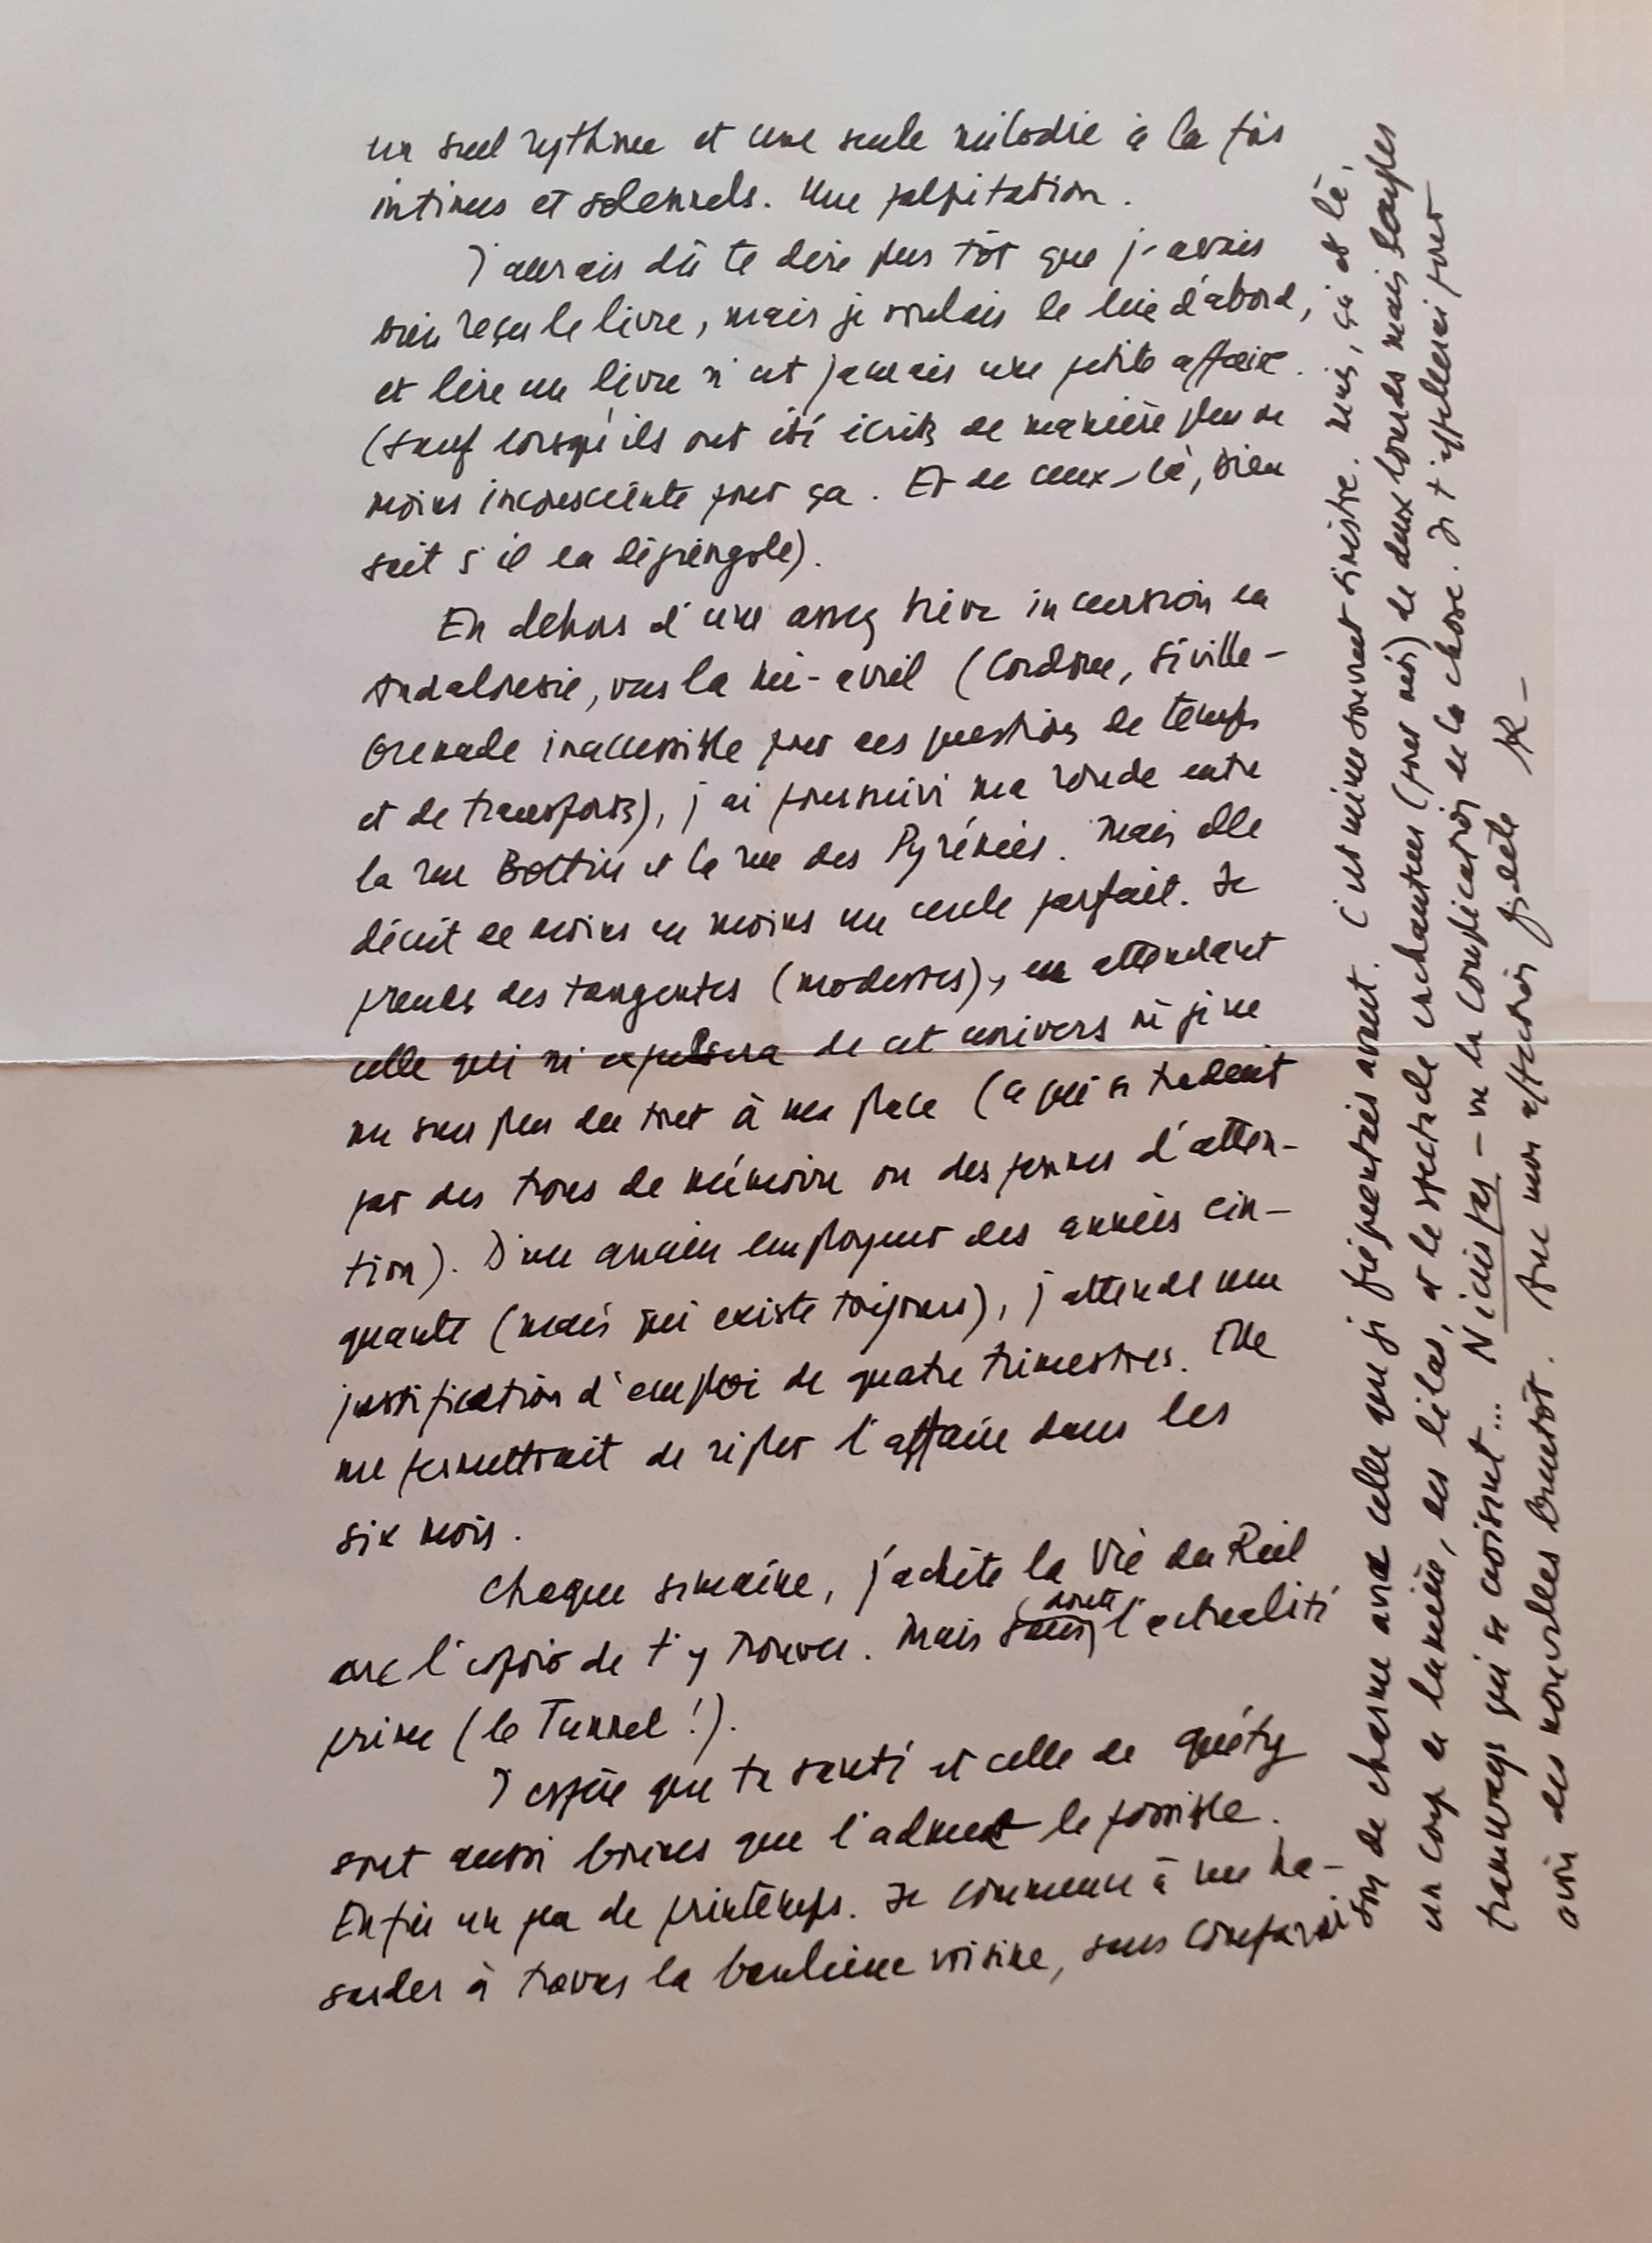 un seul rythme et une seule mélodie à la fois
intimes et solennels. Une palpitation.
J'aurais dû te dire plus tôt que j'avais
bien reçu le livre, mais je voulais le lire d'abord,
et lire un livre n'est jamais une petite affaire.
(sauf lorsqu'ils ont été écrits de manière plus ou
moins inconsciente pour ça. Et de ceux-là, Dieu
sait s'il en dégringole).
En dehors d'une assez brève incursion en
Andalousie, vers la mi-avril (Cordoue, Séville -
Grenade inaccessible pour des questions de temps
et de transports), j'ai poursuivi ma ronde entre
la rue Bottin et la rue des Pyrénées. Mais elle
décrit de moins en moins un cercle parfait. Je
prends des tangentes (modestes), en attendant
celle qui m'expulsera de cet univers où je ne
me sens plus du tout à ma place (ce qui se traduit
par des trous de mémoire ou des pannes d'atten-
tion). D'un ancien employeur des années cin-
quante (mais qui existe toujours), j'attends une
justification d'emploi de quatre trimestres. Elle
me permettrait de régler l'affaire dans les
six mois.
Chaque semaine, j'achète la Vie du Rail
avec l'espoir de t'y trouver. Mais sans doute l'actualité
prime (le Tunnel !).
J'espère que ta santé et celle de
sont aussi bonnes que l'admet le possible.
Enfin un peu de printemps. Je commence à me ha-
sarder à travers la banlieue voisine, sans comparai-
son de charme avec celle que je fréquentais avant. C'est même souvent sinistre. Mais, çà et là,
un coup de lumière, des lilas, et le spectacle enchanteur (pour moi) de deux lourds mais souples
tramways qui se croisent... - vu la complication de la chose. Je t'appellerai pour
avoir des nouvelles bientôt. Avec mon affection fidèle